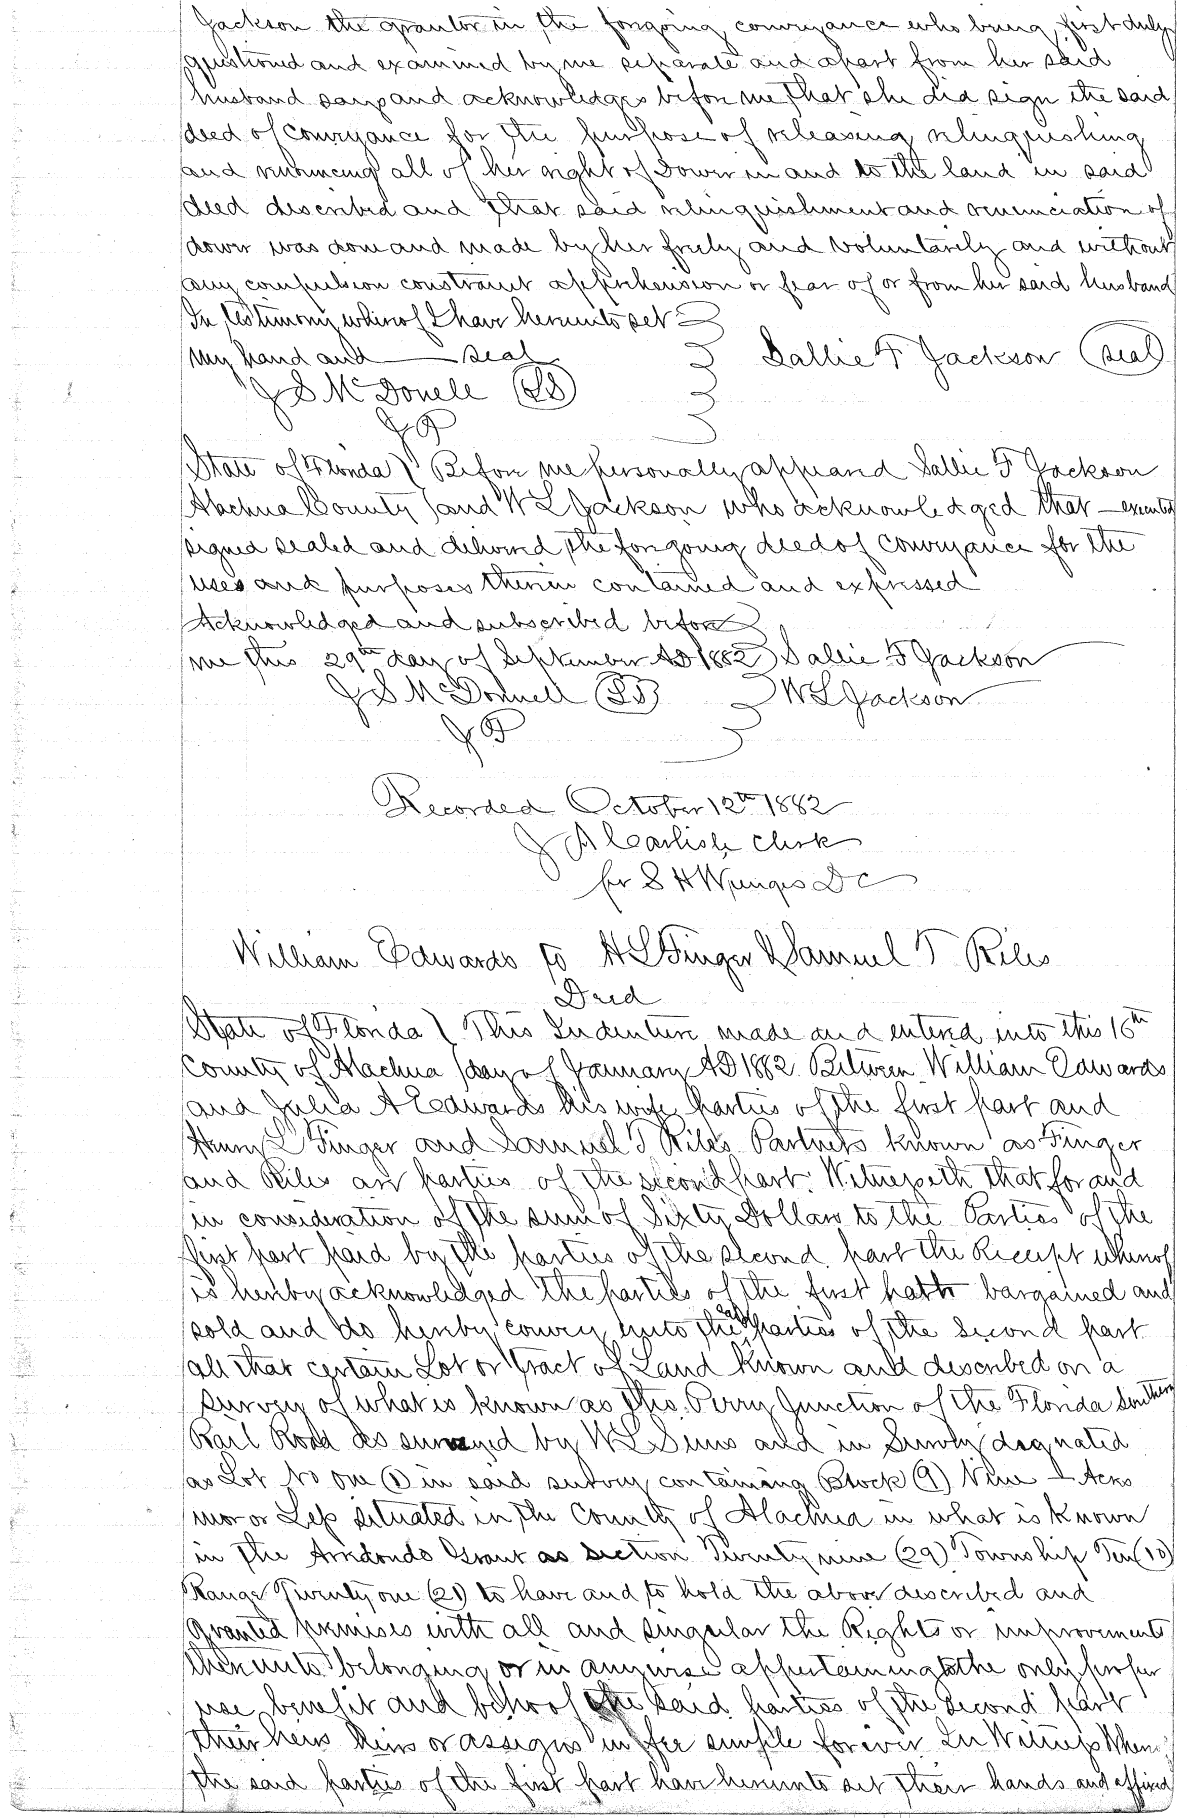 Jackson the grantor in the forgoing conveyance who being first duly
questioned and examined by me separate and apart from her said
husband says and acknowledges before me that she did sign the said
deed of conveyance for the purpose of releasing relinquishing
and renouncing all of her right of Dower in and to the land in said
deed described and that said relinquishment and renunciation of
dower was done and made by her freely and voluntarily and without
any compulsion constraint apprehension or fear of or from her said husband
In testimony whereof I have hereunto set
my hand and — seal Sallie F Jackson (seal)
J S McDonell (LS)
J P
State of Florida ) Before me personally appeared Sallie F Jackson
Alachua County ) and W L Jackson who acknowledged that — executed
signed sealed and delivered the forgoing deed of conveyance for the
uses and purposes therein contained and expressed
Acknowledged and subscribed before
me this 29th day of September AD 1882 Sallie F Jackson
J S McDonnell (LS) W L Jackson
J P
Recorded October 12th 1882
J A Carlisle Clerk
for S H Wienges D C
William Edwards to H L Finger & Samuel T Riles
Deed
State of Florida ) This Indenture made and entered into this 16th
County of Alachua ) day of January AD 1882 Between William Edwards
and Julia A Edwards his wife parties of the first part and
Henry L Finger and Samuel T Riles Partners known as Finger
and Riles are parties of the second part. Witnesseth that for and
in consideration of the sum of Sixty Dollars to the Parties of the
first part paid by the parties of the second part the Receipt whereof
is hereby acknowledged the parties of the first hath bargained and
sold and do hereby convey unto the said parties of the second part
all that certain Lot or Tract of Land known and described on a
survey of what is known as the Perry Junction of the Florida Southern
Rail Road as surveyed by W L Sims and in Survey dignated
as Lot No one (1) in said survey containing Block (9) Nine Acres
mor or Less situated in the County of Alachua in what is known
in the Arredondo Grant as section Twenty nine (29) Township Ten (10)
Range Twenty one (21) to have and to hold the above described and
Granted premises with all and singular the Rights or improvements
thereunto belonging or in anywise appertaining to the only proper
use benefit and behoof the said parties of the second part
their heirs heirs or assigns in fee simple forever In Witness Where
the said parties of the first part have hereunto set their hands and affixed